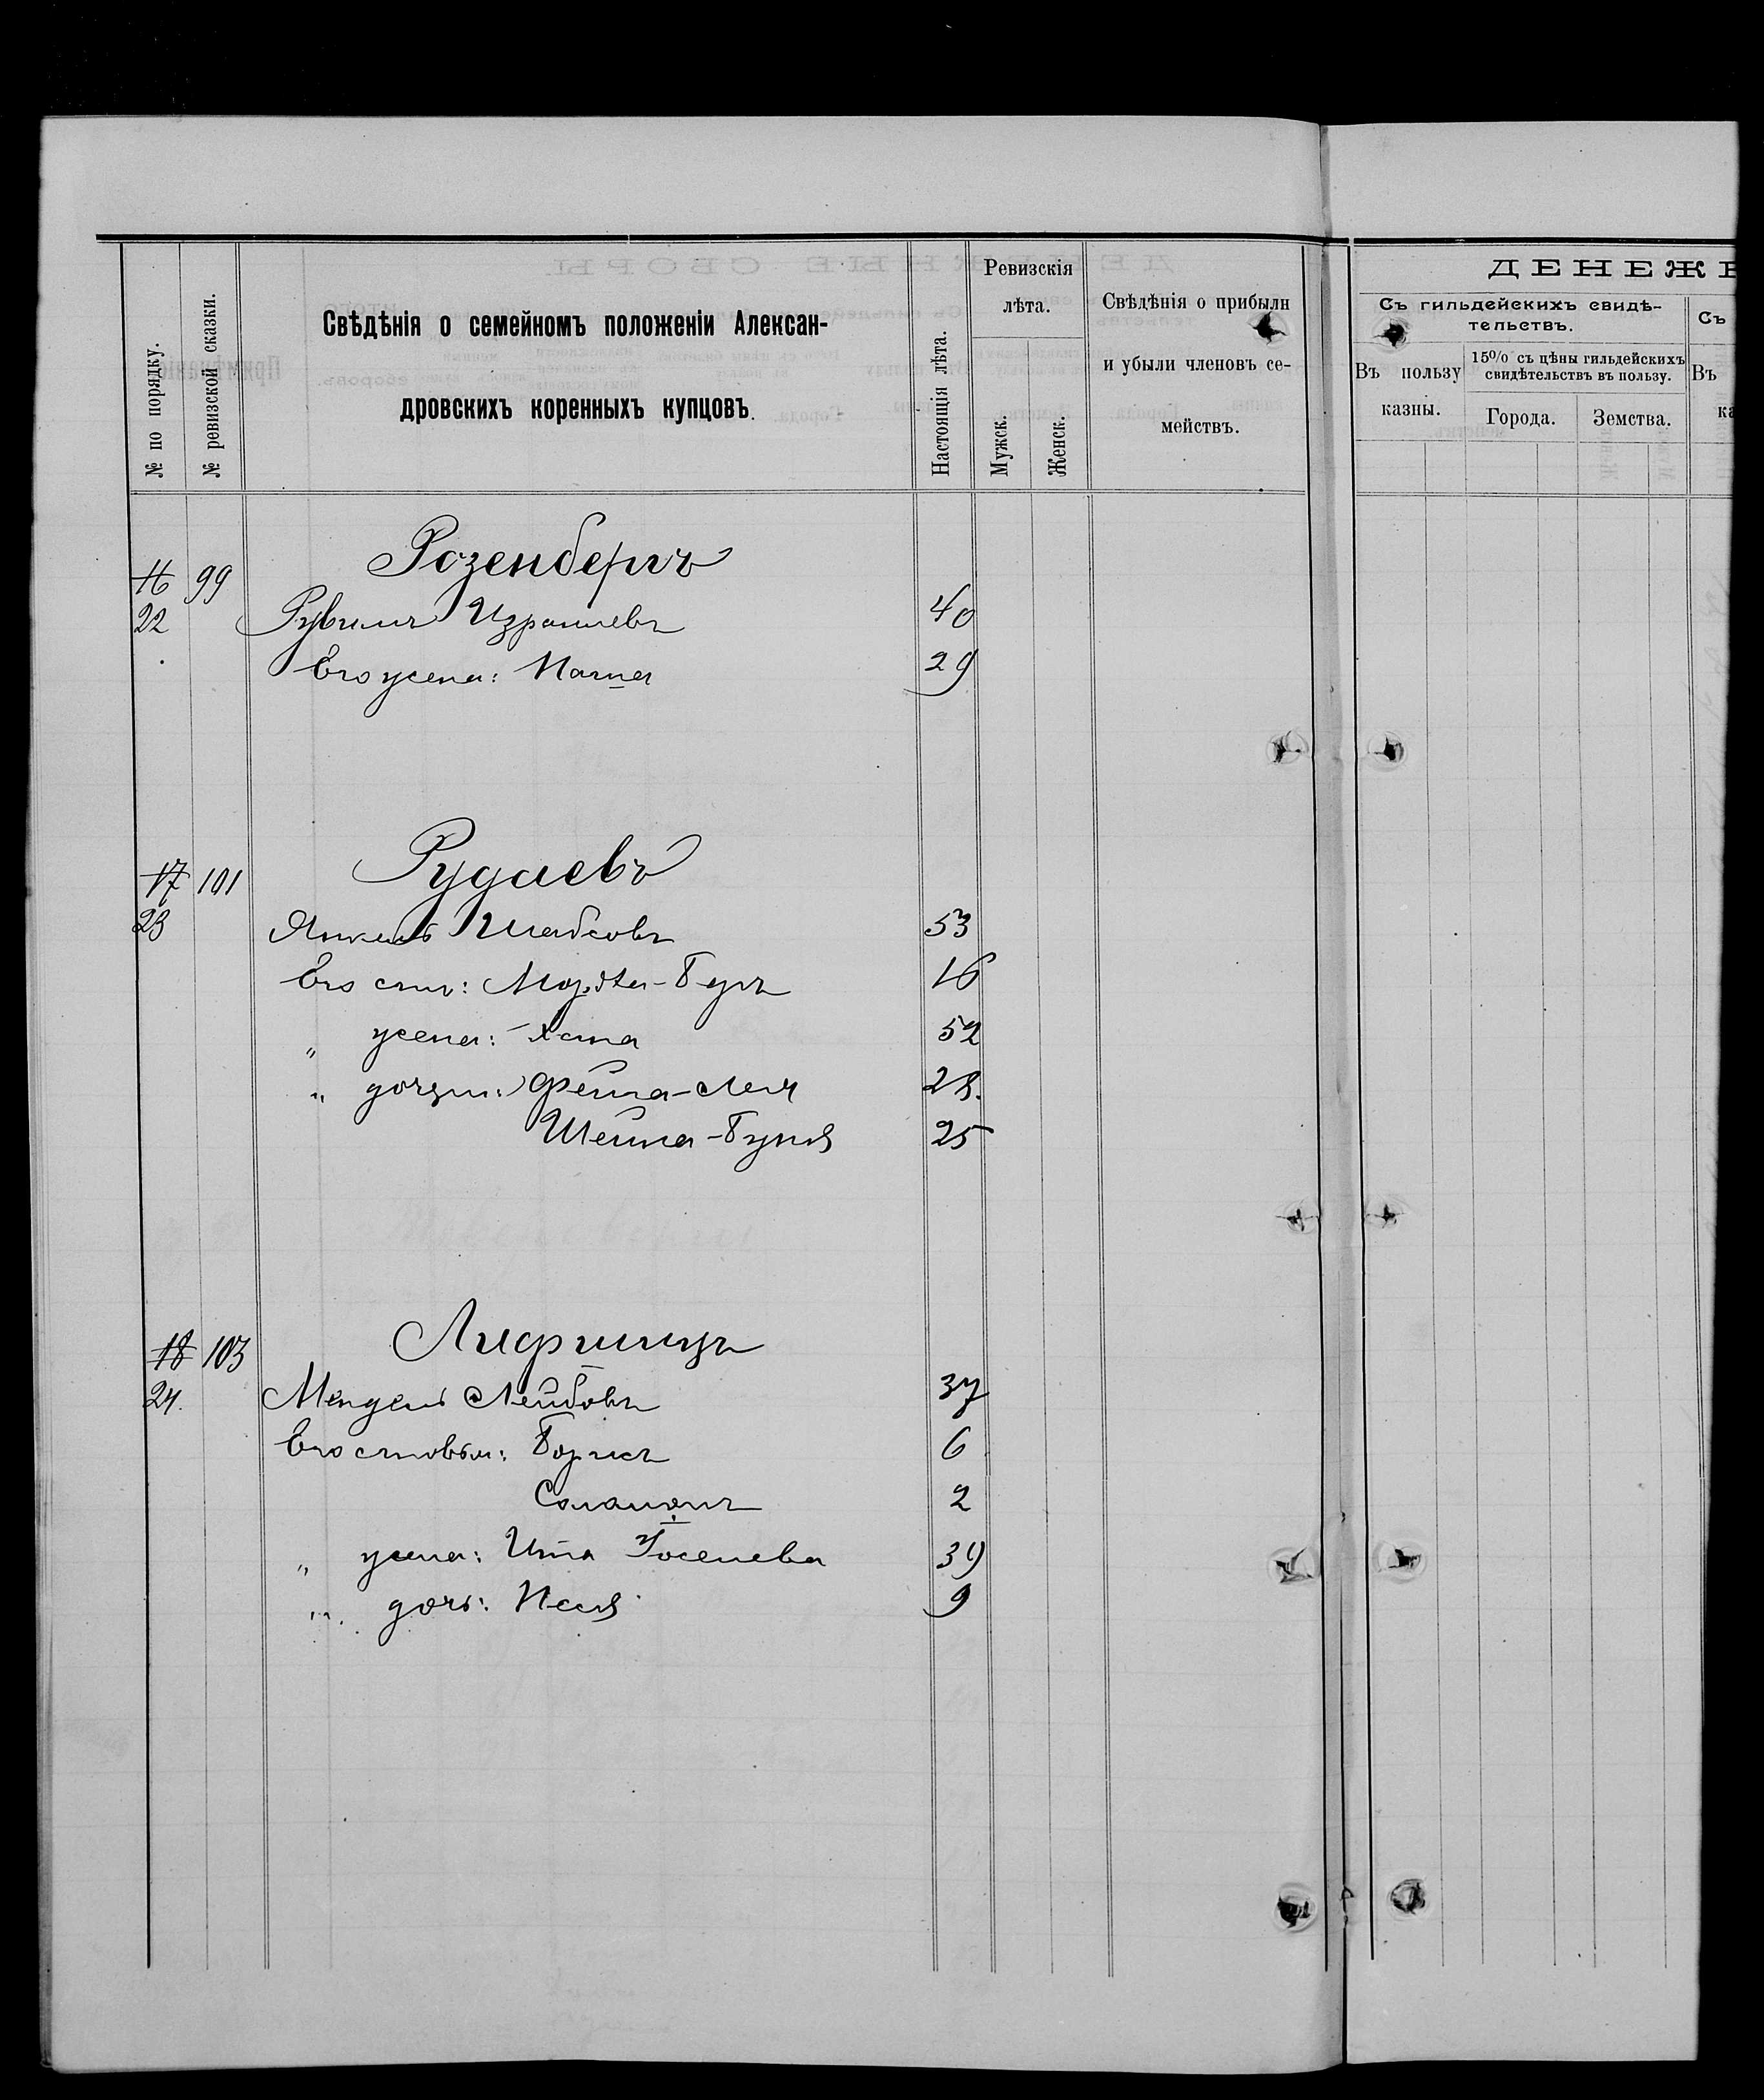 № по порядку.
№ ревизской сказки.
Свѣдѣнія о семейномъ положеніи Алексан-
дровскихъ коренныхъ купцовъ.
Настоящія лѣта.
Ревизскія
лѣта.
Мужск.
Женск.
Свѣдѣнія о прибыли
и убыли членовъ се-
мействъ.
ДЕНЕЖ
Съ гильдейскихъ свидѣ-
тельствъ.
Въ пользу
казны.
15% съ цѣны гильдейскихъ
свидѣтельствъ въ пользу.
Города.
Земства.
Съ
Въ
ка
Розенбергъ
16 99
22 Рувимъ Израилевъ 40
Его жена: 29
Рудаевъ
17 101
23 Янкель Шабсовъ 53
Его сынъ: Мордка-Беръ 16
„ жена: Хана 52
„ дочери: Фейга-Лея 28.
Шейна-Буня 25
Лифшицъ
18 103
24. Мендель Лейбовъ 37
Его сыновья: Борисъ 6
Саламонъ 2
„ жена: Ита Іоселева 39
„ дочь: Неся 9